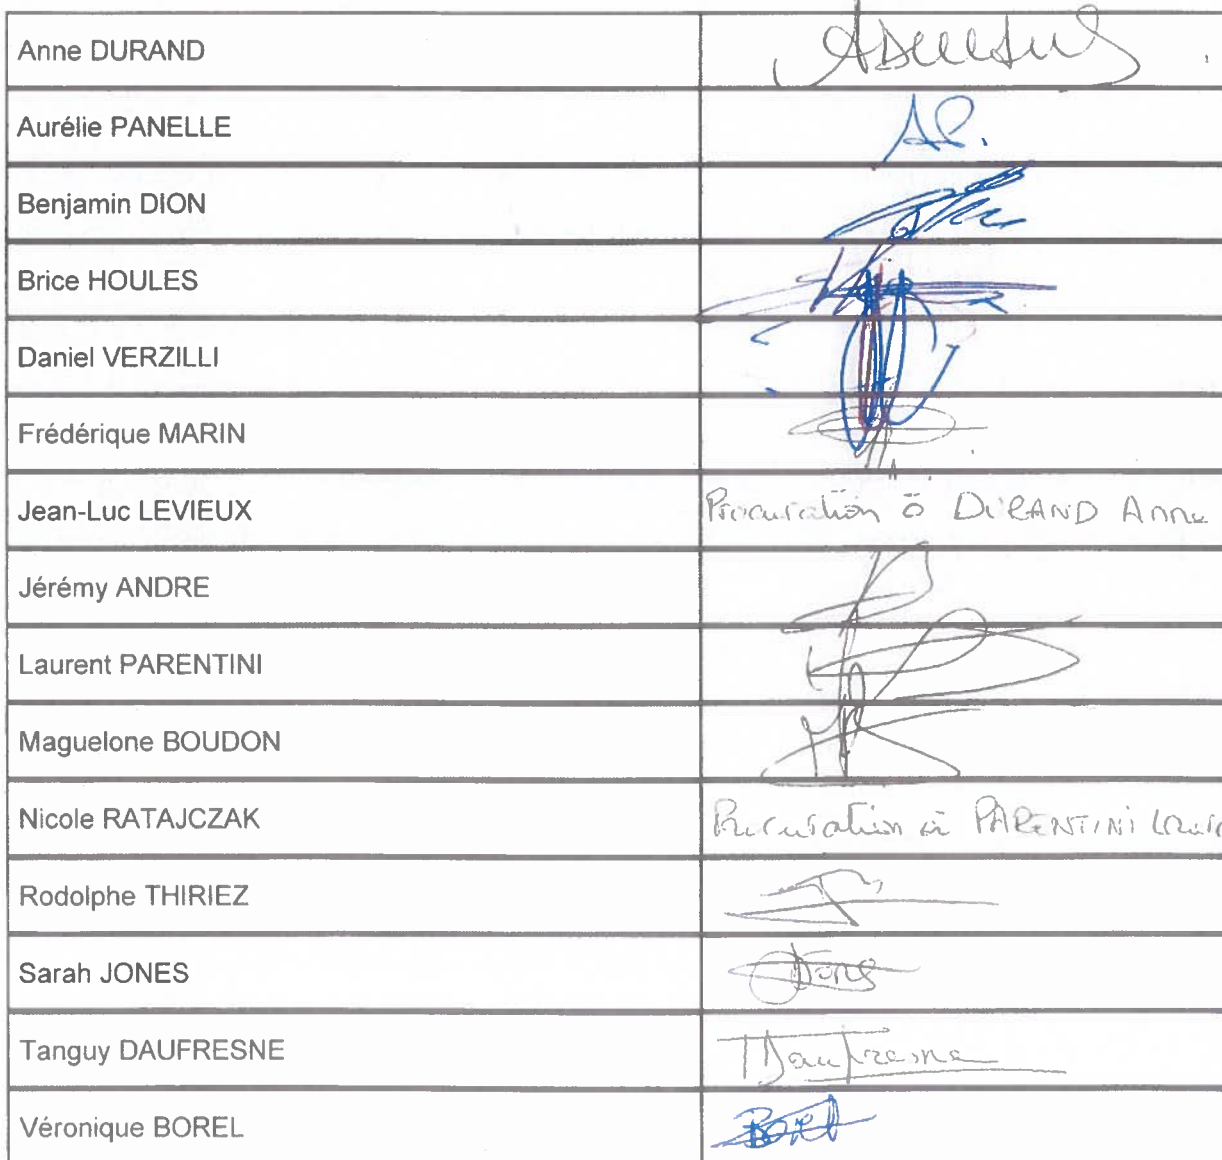 Anne DURAND
Aurélie PANELLE
AP.
Benjamin DION
Brice HOULES
Daniel VERZILLI
Frédérique MARIN
Jean-Luc LEVIEUX Procuration à DURAND Anne
Jérémy ANDRE
Laurent PARENTINI
Maguelone BOUDON
Nicole RATAJCZAK Procuration à PARENTINI
Rodolphe THIRIEZ
Sarah JONES Jones
Tanguy DAUFRESNE TDaufresne
Véronique BOREL BOREL